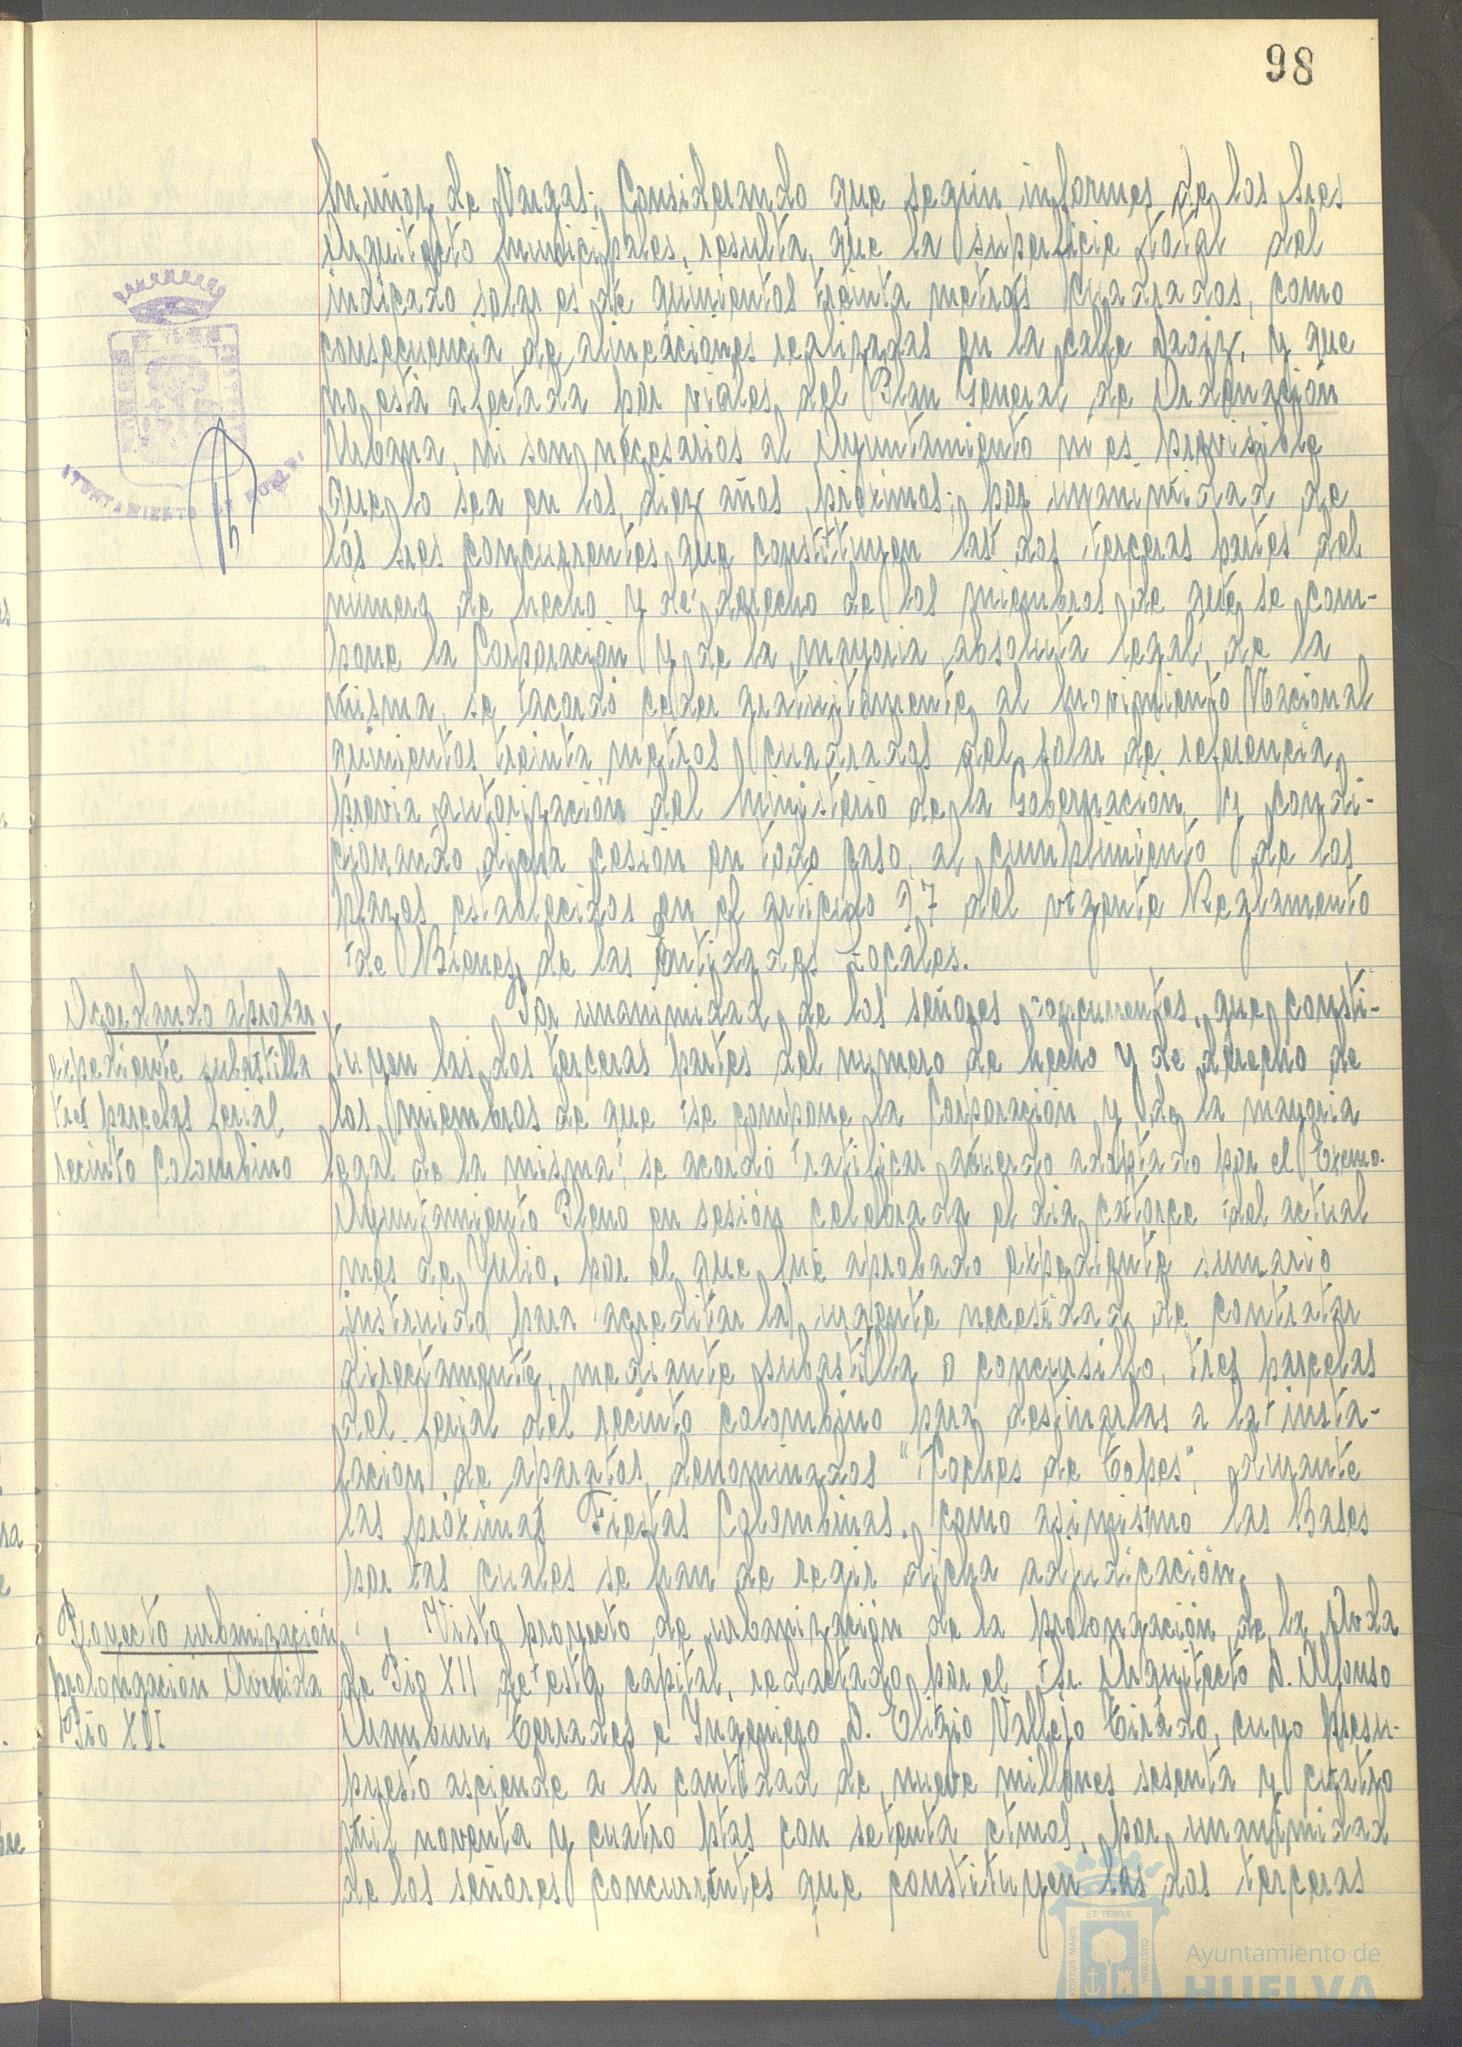 98
Muñoz de Vargas; Considerando que según informes de los Sres
Arquitecto Municipales, resulta, que la superficie total del
indicado solar es de quinientos treinta metros cuadrados, como
consecuencia de alineaciones realizadas en la calle Daoiz, y que
no está afectada por viales del Plan General de Ordenación
Urbana, ni son necesarios al Ayuntamiento ni es previsible
que lo sea en los diez años próximos; por unanimidad de
los Sres concurrentes que constituyen las dos terceras partes del
número de hecho y de derecho de los miembros de que se com-
pone la Corporación y de la mayoria absoluta legal de la
misma, se acordó ceder gratuitamente al Movimiento Nacional
quinientos treinta metros cuadrados del solar de referencia,
previa autorización del Ministerio de la Gobernación y condi-
cionando dicha cesión en todo caso, al cumplimiento de los
plazos establecidos en el artículo 97 del vigente Reglamento
de Bienes de las Entidades Locales.
Acordando aprobar
expediente subastilla
tres parcelas ferial
recinto Colombino
Por unanimidad de los señores concurrentes, que consti-
tuyen las dos terceras partes del numero de hecho y de derecho de
los miembros de que se compone la Corporación y de la mayoria
legal de la misma, se acordó ratificar acuerdo adoptado por el Excmo.
Ayuntamiento Pleno en sesión celebrada el dia catorce del actual
mes de Julio, por el que fué aprobado expediente sumario
instruido para acreditar la urgente necesidad de contratar
directamente, mediante subastilla o concursillo, tres parcelas
del ferial del recinto colombino para destinarlas a la insta-
lación de aparatos, denominados "Coches de Topes", durante
las próximas Fiestas Colombinas, como asimismo las Bases
por las cuales se han de regir dicha adjudicación.
Proyecto urbanización
prolongación Avenida
Pio XII
Visto proyecto de urbanización de la prolongación de la Avda
de Pio XII de esta capital, redactado por el Sr. Arquitecto D. Alfonso
Aramburu Terrades e Ingeniero D. Eligio Vallejo Tirado, cuyo presu-
puesto asciende a la cantidad de nueve millones sesenta y cuatro
mil noventa y cuatro ptas con setenta ctmos, por unanimidad
de los señores concurrentes que constituyen las dos terceras
AYUNTAMIENTO DE HUELVA
PORTUS MARIS
ET TERRÆ
CUSTODIA
Ayuntamiento de
HUELVA